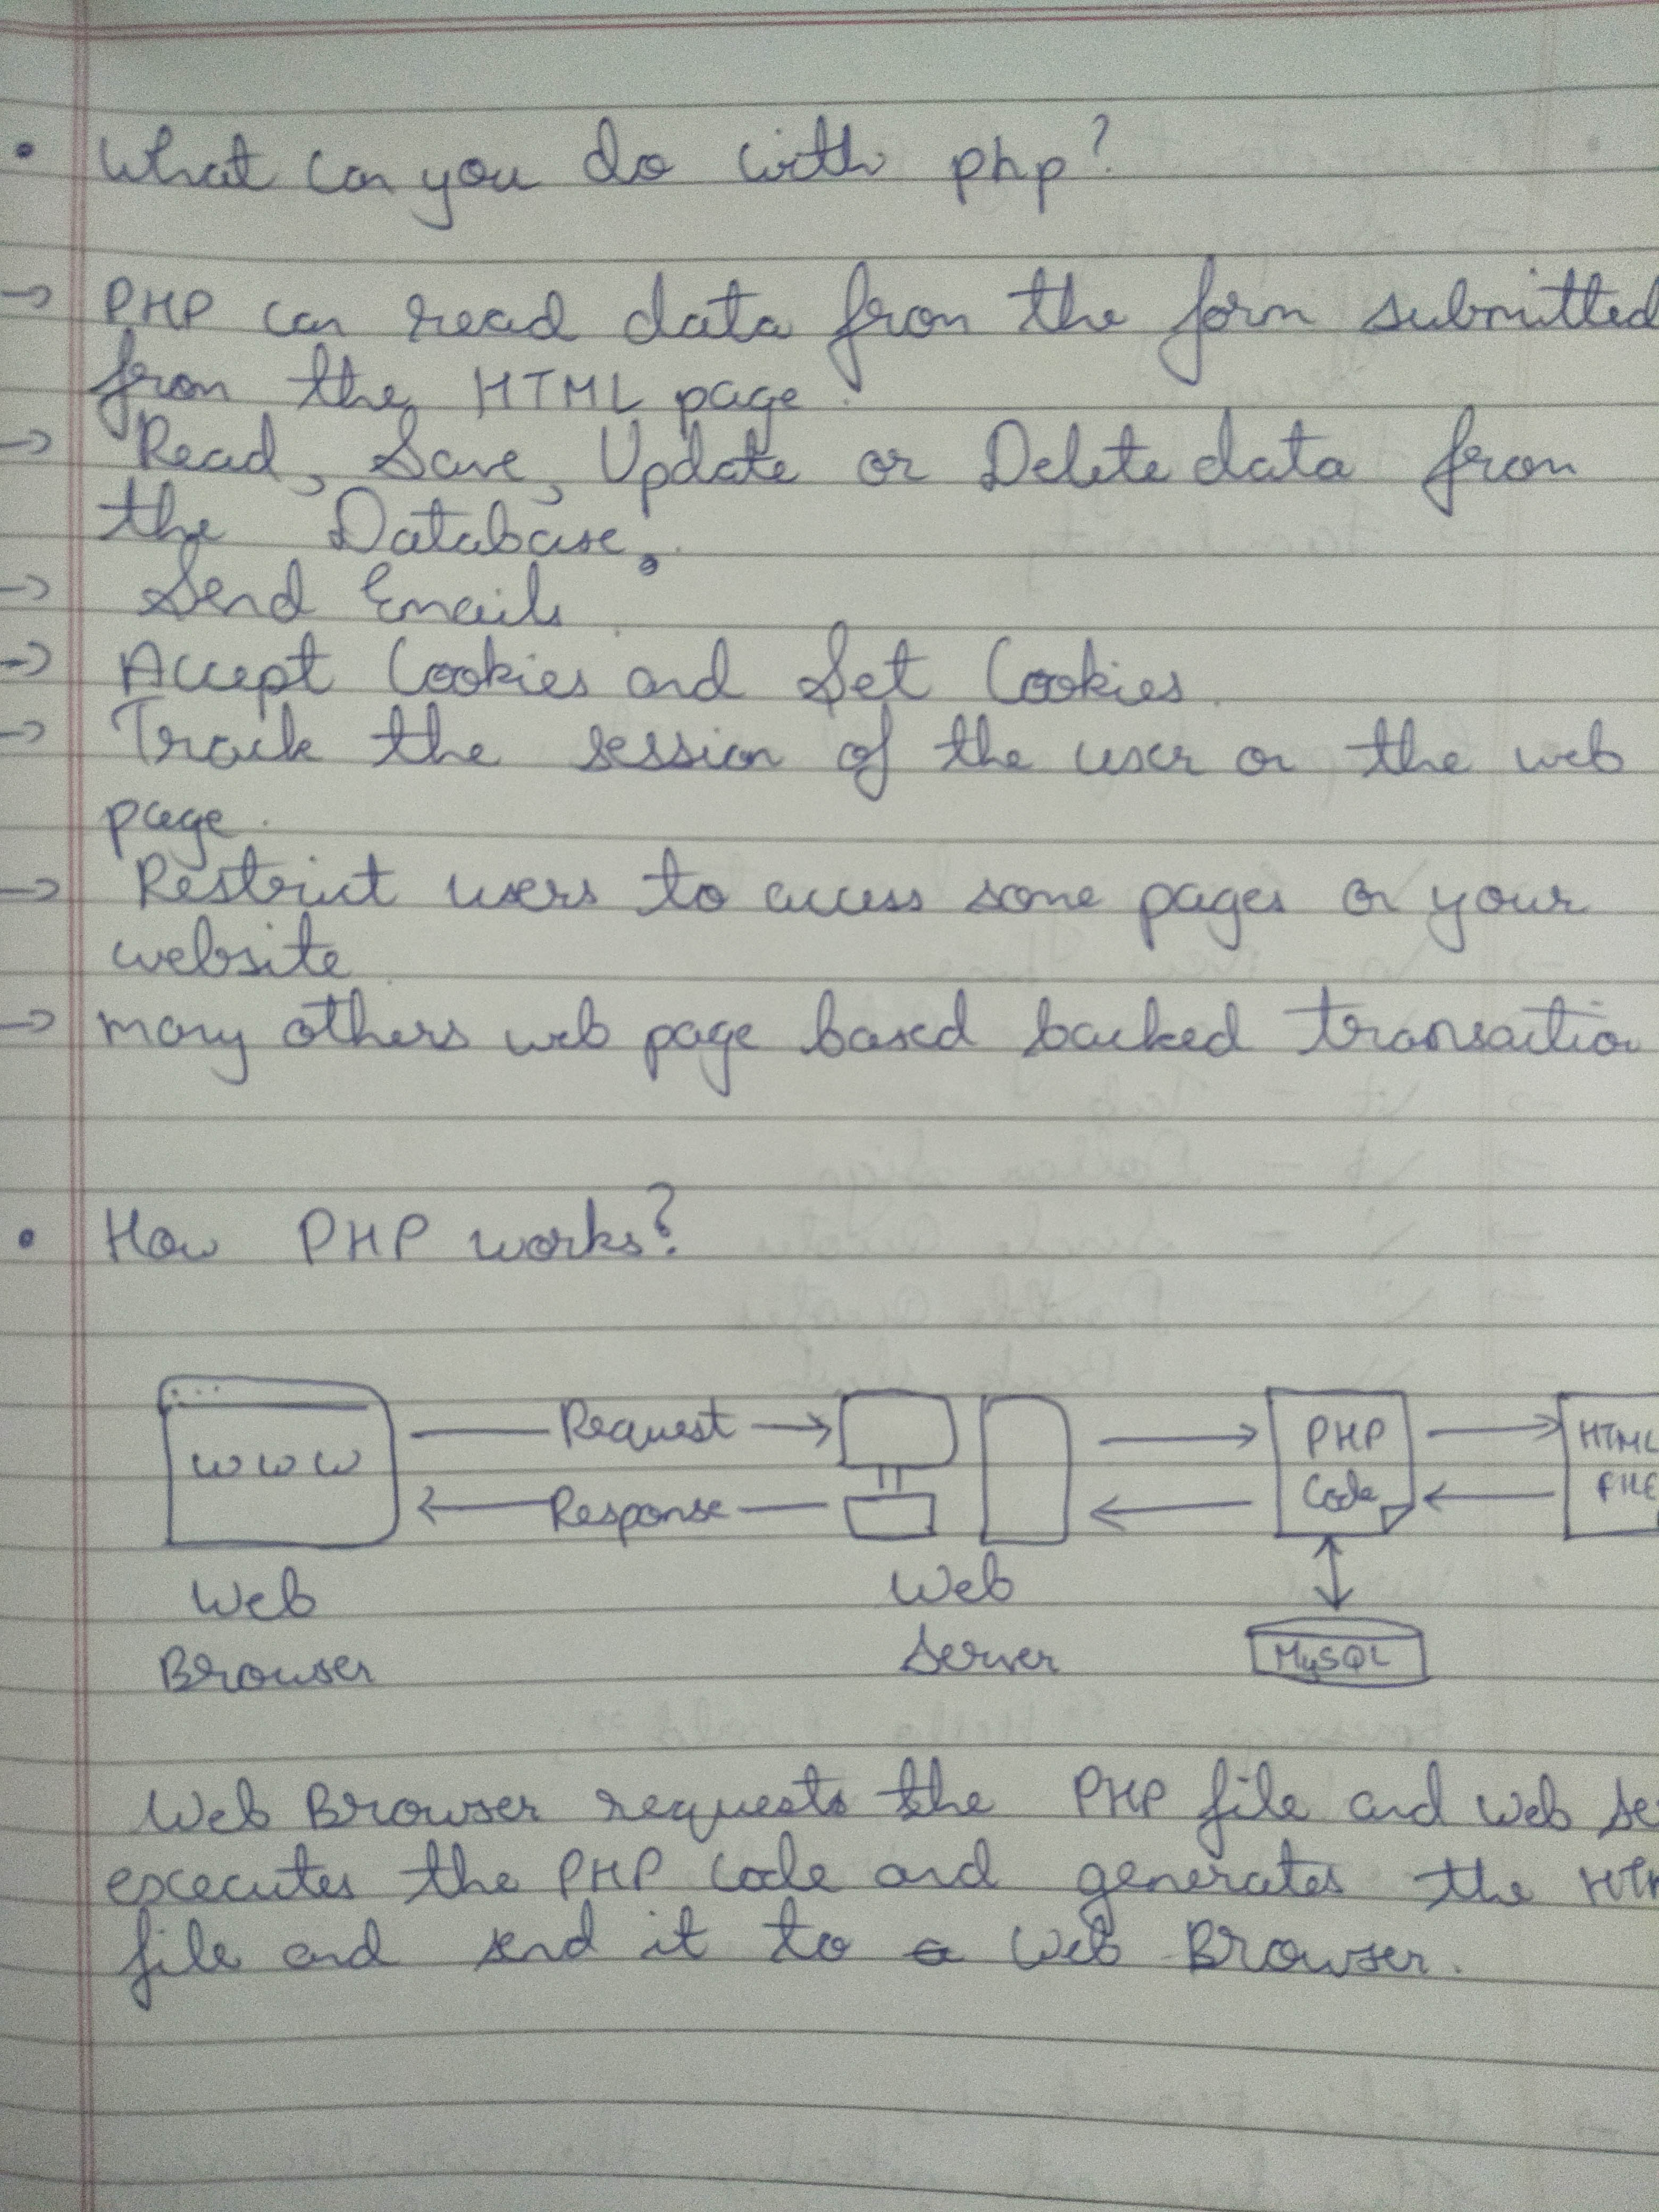 • What can you do with php?
→ PHP can read data from the form submitted
from the HTML page.
→ Read, Save, Update or Delete data from
the Database.
→ Send Emails
→ Accept Cookies and Set Cookies.
→ Track the session of the user on the web
page.
→ Restrict users to access some pages on your
website
→ many others web page based backed transaction
• How PHP works?
www
Request
Response
PHP
Code
HTML
FILE
Web
Browser
Web
Server
MySQL
Web Browser requests the PHP file and web se
excecutes the PHP code and generates the HTM
file and send it to a Web Browser.